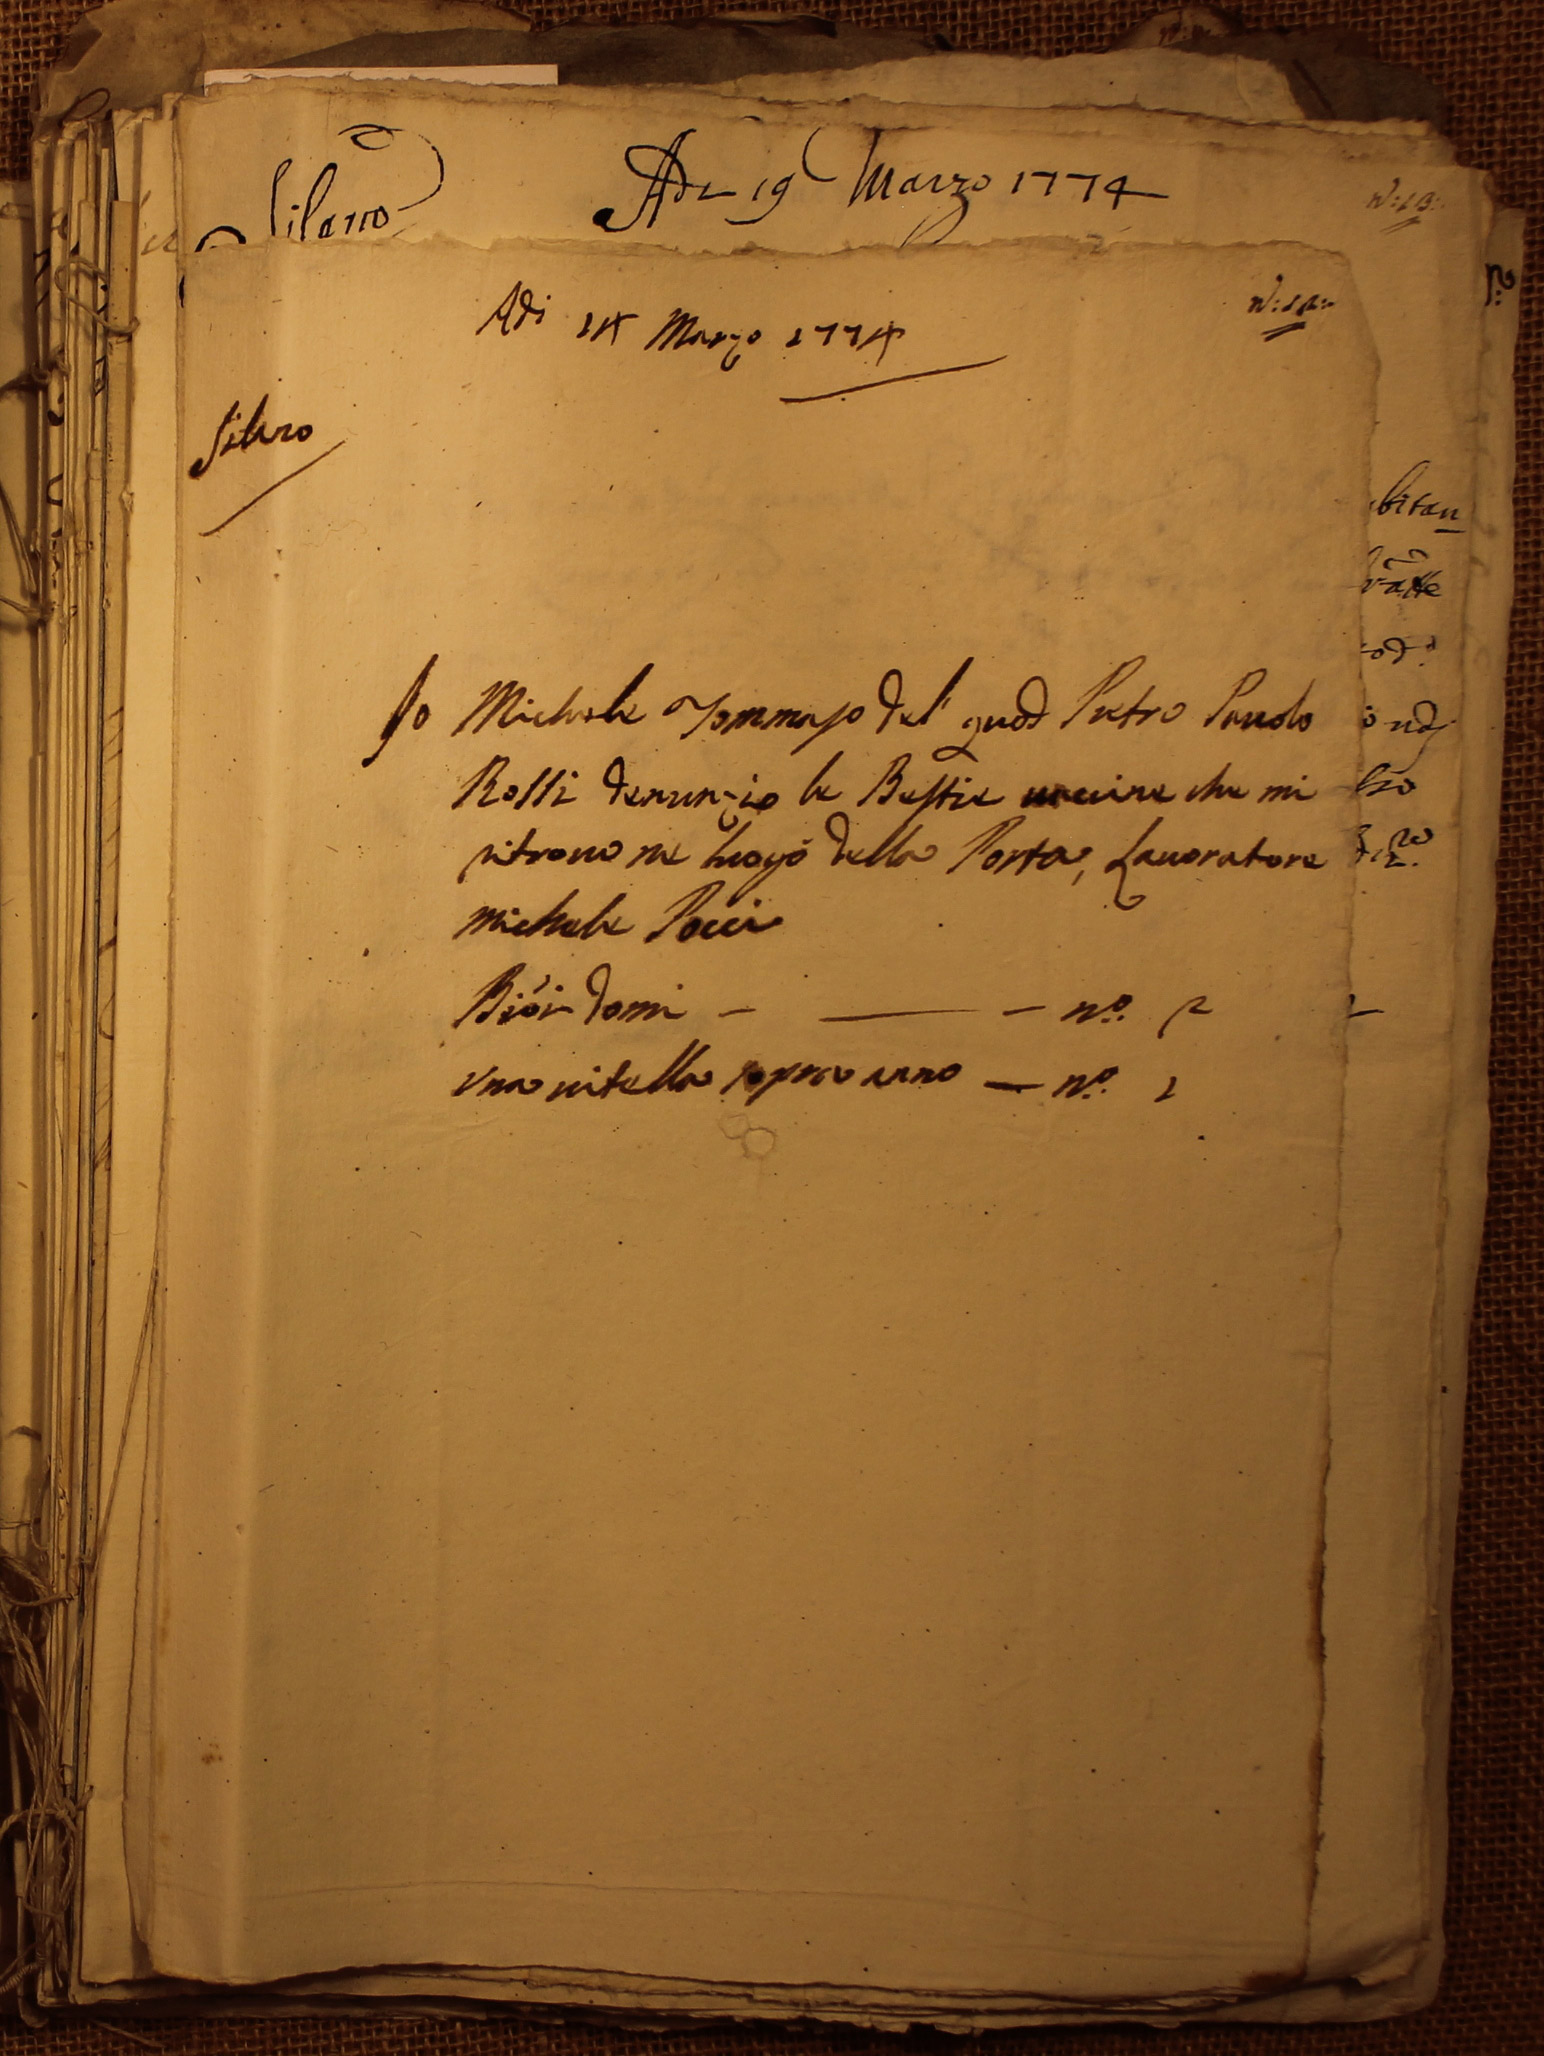 Silano
Adi 19 Marzo 1774
N: 13:
Adi 14 Marzo 1774
N: 12:
Silano
Io Michele Tommaso del quod Pietro Paolo
Rossi denunzio le Bestie vaccine che mi
ritrovo ne luogo della Porta, Lavoratore
michele Pocci
Bióv domi — — — nº. 2
Una vitella sopra anno — nº. 1